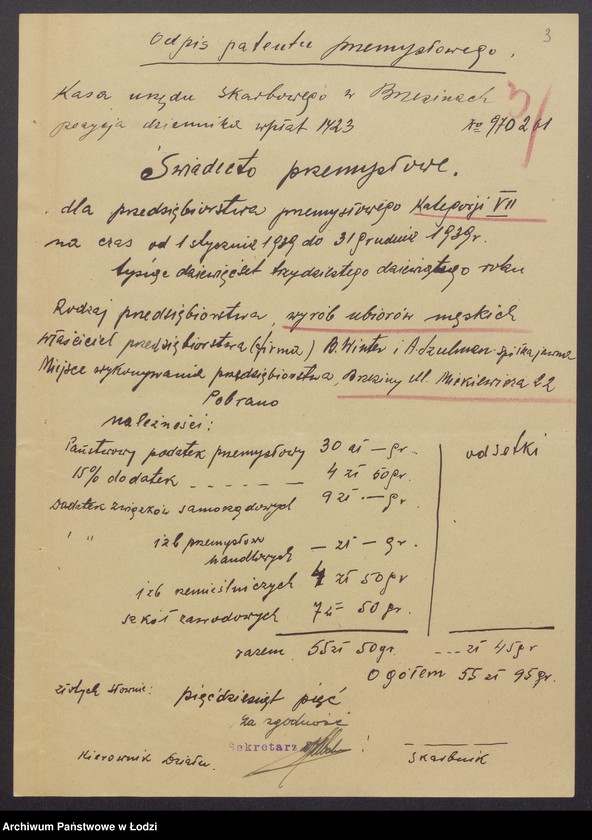 3
Odpis patentu przemysłowego.
Kasa urzędu skarbowego w Brzezinach
pozycja dziennika wpłat 1423 No 970261
Świadecto przemysłowe.
dla przedsiębiorstwa przemysłowego Kategorji VII
na czas od 1 stycznia 1939 do 31 grudnia 1939r.
tysiąc dziewięćset trzydziestego dziewiątego roku
Rodzaj przedsiębiorstwa wyrób ubiorów męskich
właściciel przedsiębiorstwa (firma) B. Winter i A. Szulman spółka jawna
Miejsce wykonywania przedsiębiorstwa Brzeziny ul. Mickiewicza 22
Pobrano
należności:
Państwowy podatek przemysłowy 30 zł — gr. odsetki
15% dodatek 4 zł 50 gr.
Dodatek związków samorządowych 9 zł — gr.
" " izb przemysłow handlowych — zł — gr.
izb rzemieślniczych 4 zł 50 gr
szkół zawodowych 7 zł 50 gr.
razem 55 zł 50 gr. --- zł 45 gr
Ogółem 55 zł 95 gr.
złotych słownie: pięćdziesiąt pięć
za zgodność
Sekretarz
Kierownik Działu. Skarbnik
Archiwum Państwowe w Łodzi